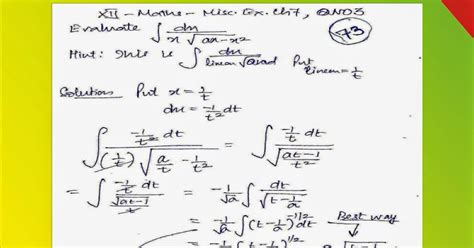 XII - Maths - Misc. Ex. Ch7, QNO3
Evaluate ∫ dx / x√(ax-x²) 73
Hint: This is ∫ dx / linear √quad Put linear = 1/t
Solution Put x = 1/t
dx = -1/t² dt
∫ (-1/t² dt) / ((1/t) √(a/t - 1/t²)) = ∫ (-1/t dt) / √((at-1)/t²)
= ∫ (-1/t dt) / (√(at-1)/t) = -1/√a ∫ dt / √(t-1/a)
= -1/√a ∫ (t-1/a)^(-1/2) dt Best way
= -1/√a (t-1/a)^(1/2)